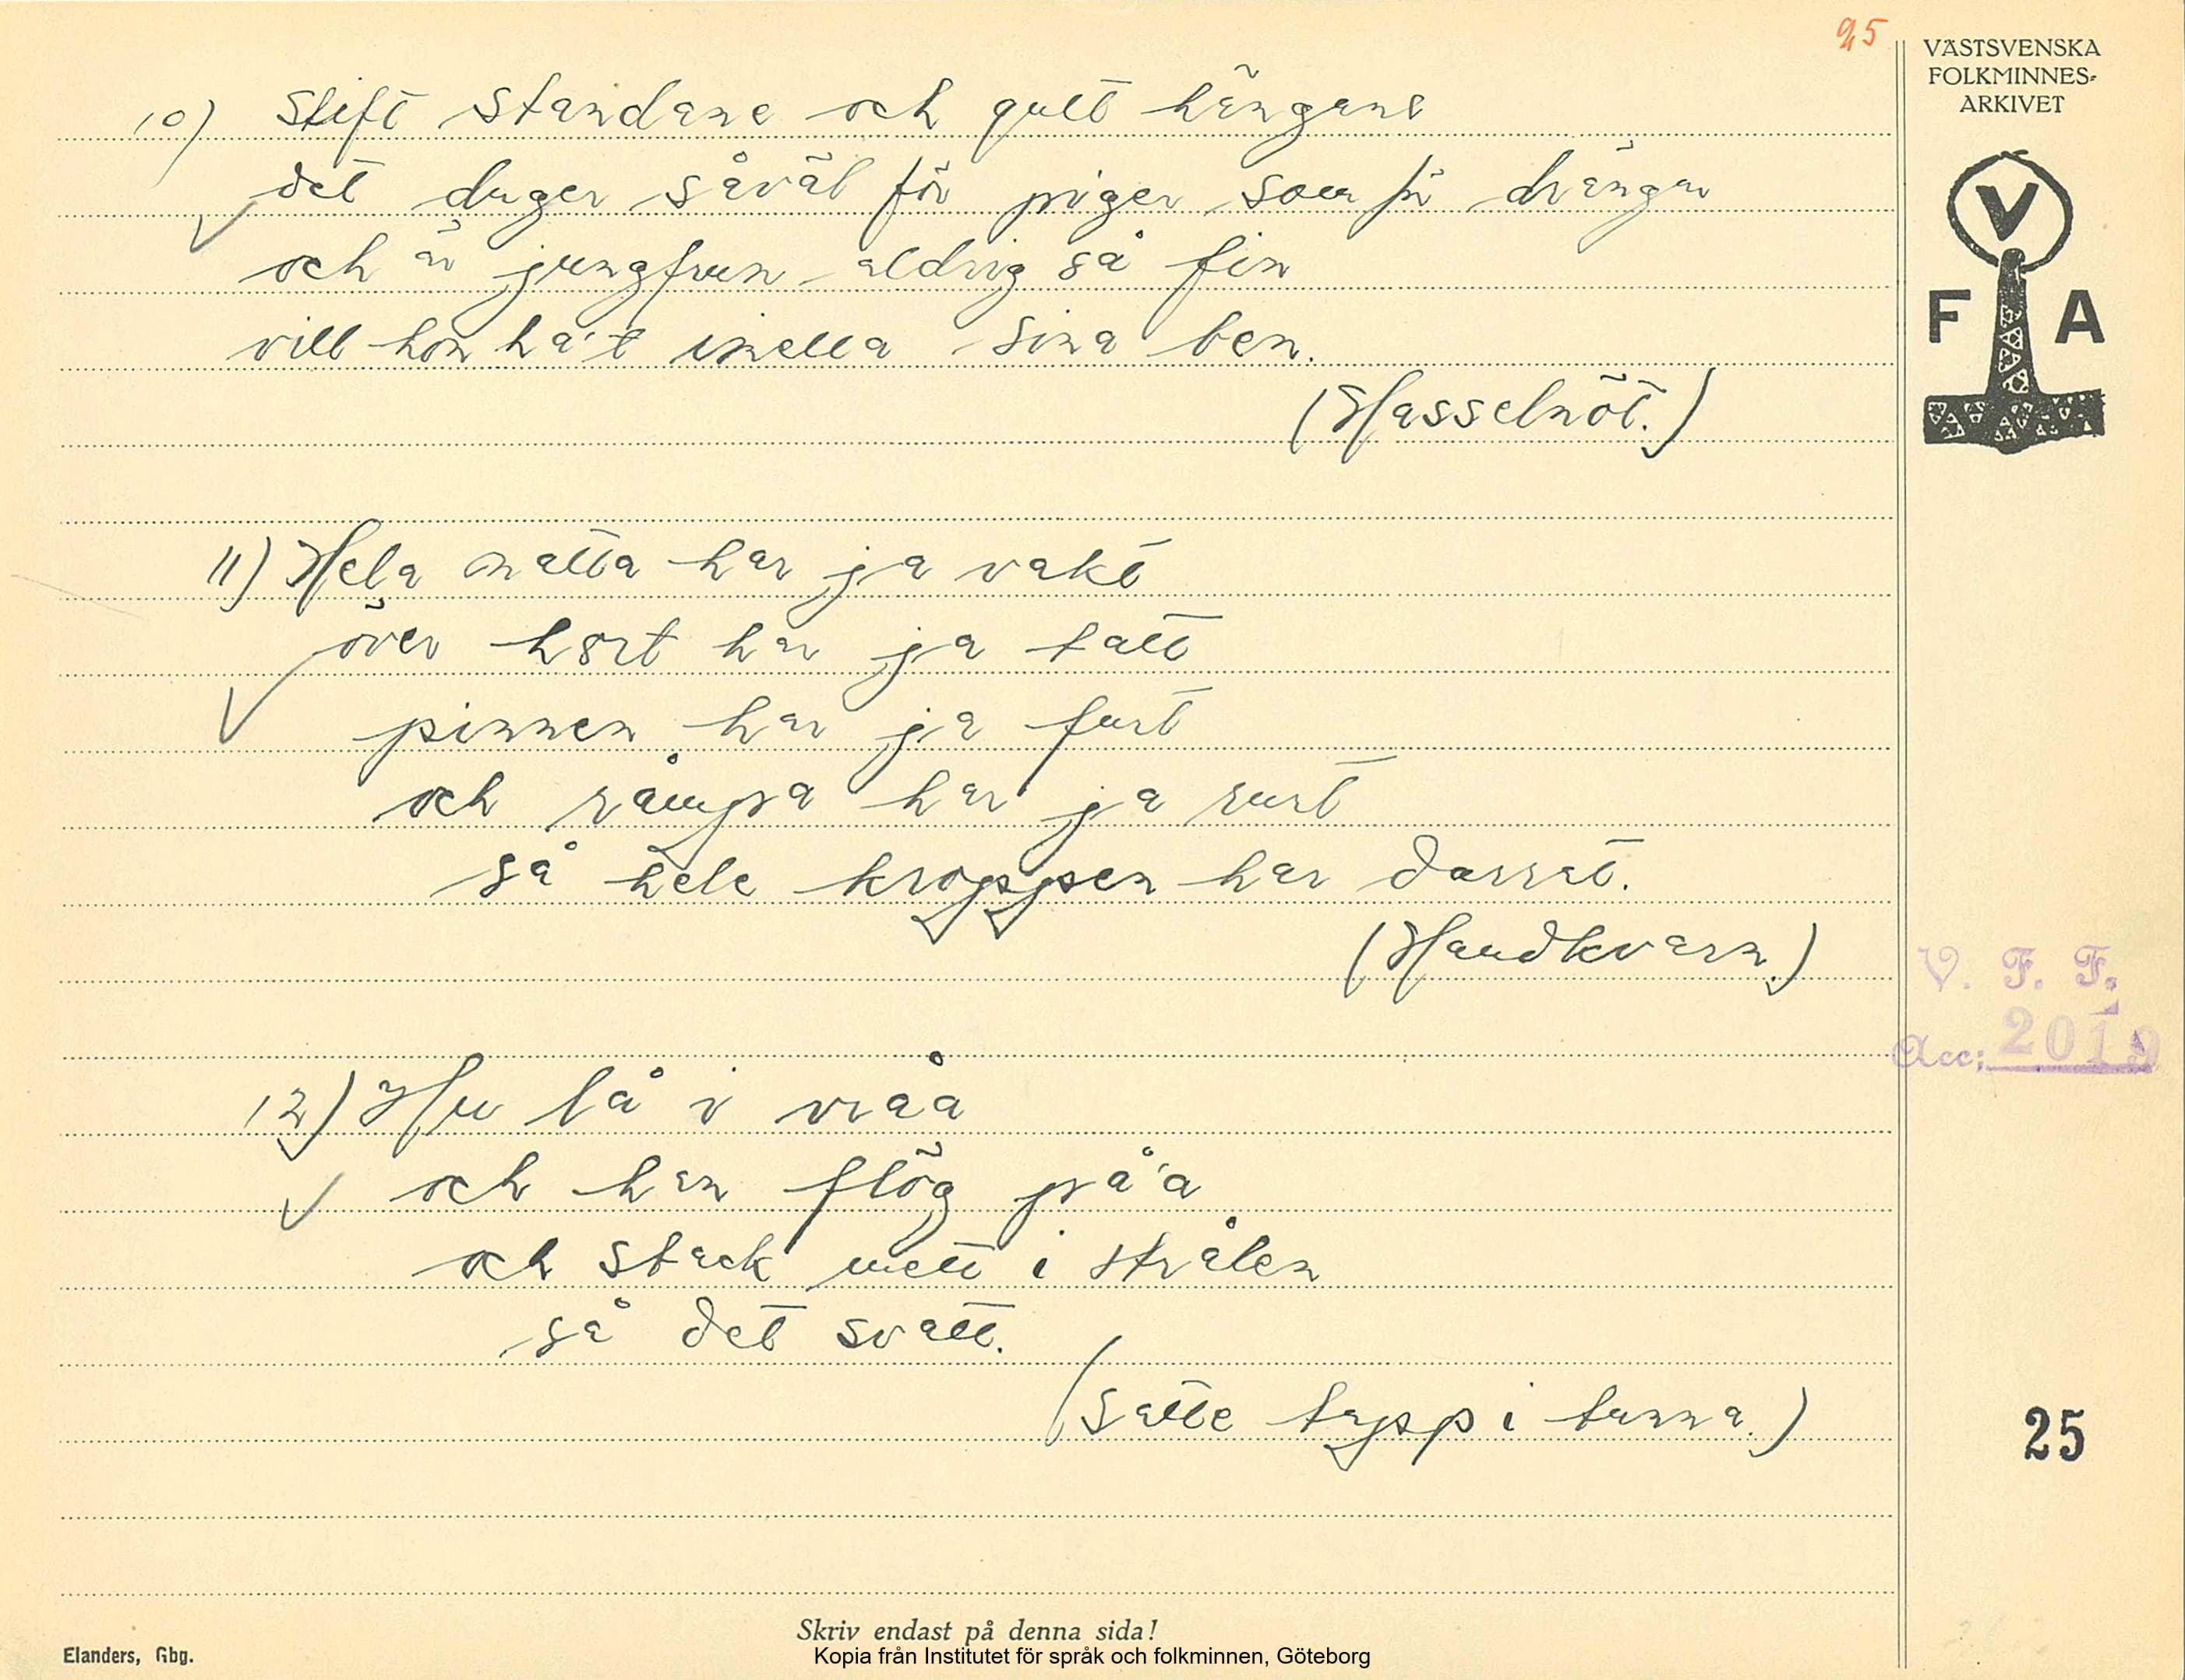 25
VÄSTSVENSKA
FOLKMINNES-
ARKIVET
V
F A
10) Stift standane och gult hängane
det duger såväl för piger som för drängar
och är jungfrun aldrig så fin
vill hon ha't imella sina ben.
(Hasselnöt.)
11) Hela natta har ja vakt
över hort har ja tatt
pinnen har ja furt
och råmpa har ja rurt
så hele kroppen har darrat.
(Handkvarn.)
12) Hu lå i vråa
och han flög på'a
och stack mett i strålen
så det svatt.
(Satte tapp i tunna.)
V. F. F.
Acc: 2019
25
Skriv endast på denna sida!
Elanders, Gbg.
Kopia från Institutet för språk och folkminnen, Göteborg